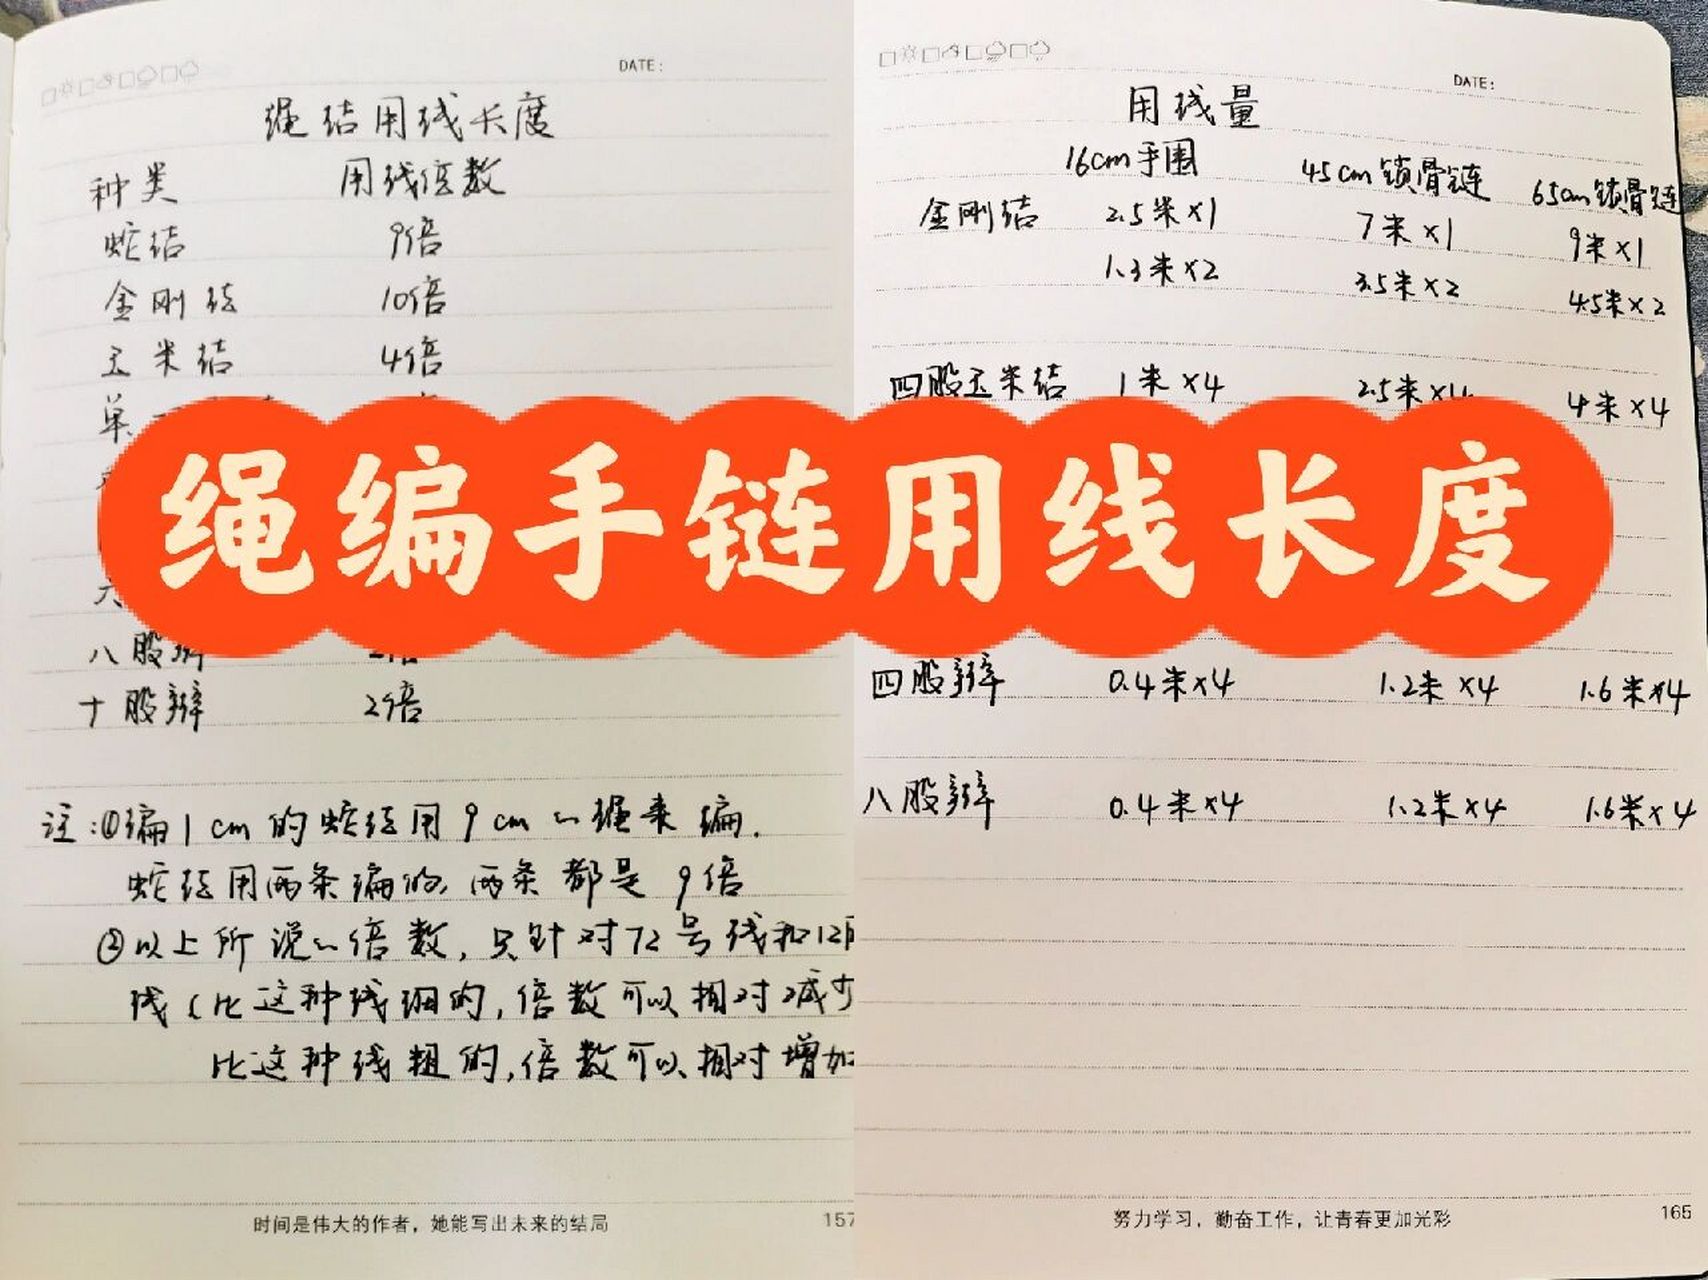 DATE:
绳结用线长度
种类 用线倍数
蛇结 9倍
金刚结 10倍
玉米结 4倍
单
八股辫 2倍
十股辫 2倍
注:①编1cm的蛇结用9cm的绳来编.
蛇结用两条编的,两条都是9倍
②以上所说的倍数,只针对72号线和12
线(比这种线细的,倍数可以相对减少
比这种线粗的,倍数可以相对增加
时间是伟大的作者，她能写出未来的结局
157
绳编手链用线长度
DATE:
用线量
16cm手围 45cm锁骨链 65cm锁骨链
金刚结 2.5米×1 7米×1 9米×1
1.3米×2 3.5米×2 4.5米×2
四股玉米结 1米×4 2.5米×4 4米×4
四股辫 0.4米×4 1.2米×4 1.6米×4
八股辫 0.4米×4 1.2米×4 1.6米×4
努力学习，勤奋工作，让青春更加光彩
165